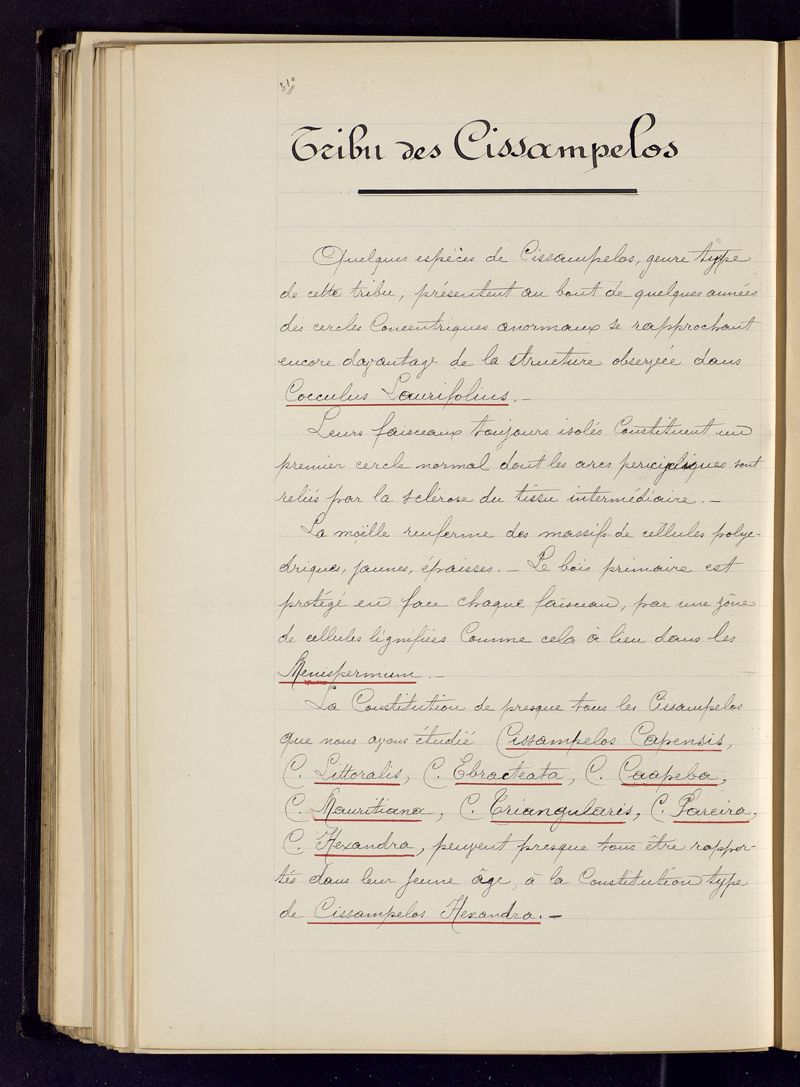 Tribu des Cissampelos
Quelques espèces de Cissampelos, genre type
de cette tribu, présentent au bout de quelques années
des cercles Concentriques anormaux se rapprochant
encore davantage de la structure observée dans
Cocculus Laurifolius. —
Leurs faisceaux toujours isolés Constituent un
premier cercle normal dont les arcs péricycliques sont
reliés par la sclérose du tissu intermédiaire. —
La moëlle renferme des massifs de cellules polye-
driques, jaunes, épaisses. — Le bois primaire est
protégé en face chaque faisceau, par une zône
de cellules lignifiées Comme cela à lieu dans les
Menispermum. —
La Constitution de presque tous les Cissampelos
que nous avons étudié Cissampelos Capensis,
C. Littoralis, C. Ebracteata, C. Caapeba,
C. Mauritiana, C. Triangularis, C. Pareira,
C. Hexandra, peuvent presque tous être rappor-
tés dans leur jeune âge, à la Constitution type
de Cissampelos Hexandra. —